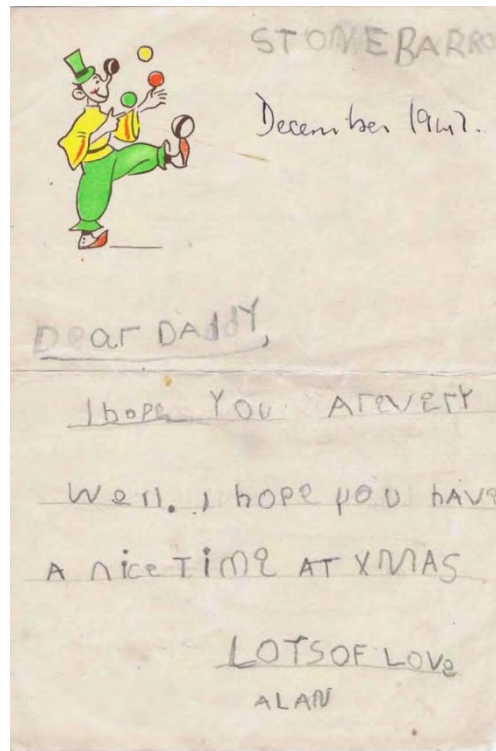 STONEBARRO
December 1947.
Dear DADdY,
I hope YOU AreverY
Well. I hope you have
A nice Time AT XMAS
LOTSOF LOVe
ALAN